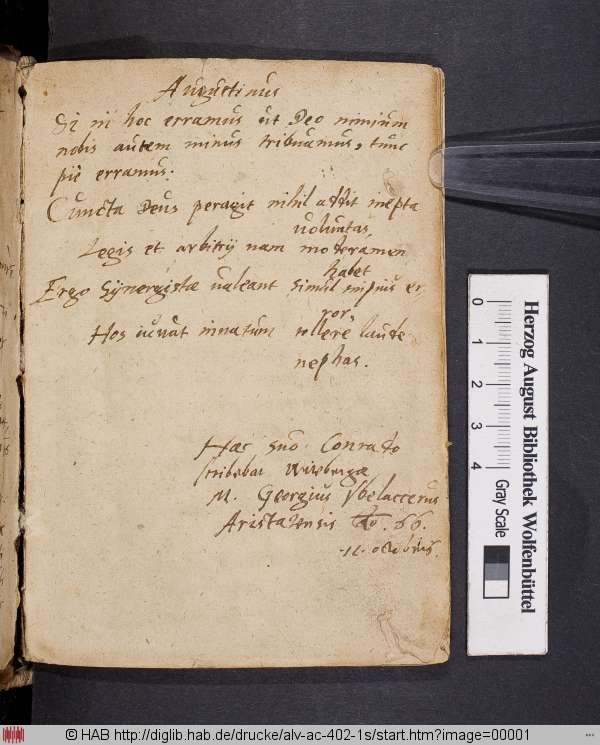 Augustinus
Si in hoc erramus ut Deo nimium
nobis autem minus tribuamus, tunc
piè erramus.
Cuncta Deus peragit nihil addit inepta
voluntas,
Legis et arbitrij nam moderamen
habet
Ergo Synergistæ valeant simul impius er
ror,
Hos iuvat innatum tollere laude
nephas.
Hæc suo Conrado
scribebat Witebergæ
M. Georgius
66.
octobris.
0
1
2
3
4
cm
Gray Scale
Herzog August Bibliothek Wolfenbüttel
© HAB http://diglib.hab.de/drucke/alv-ac-402-1s/start.htm?image=00001